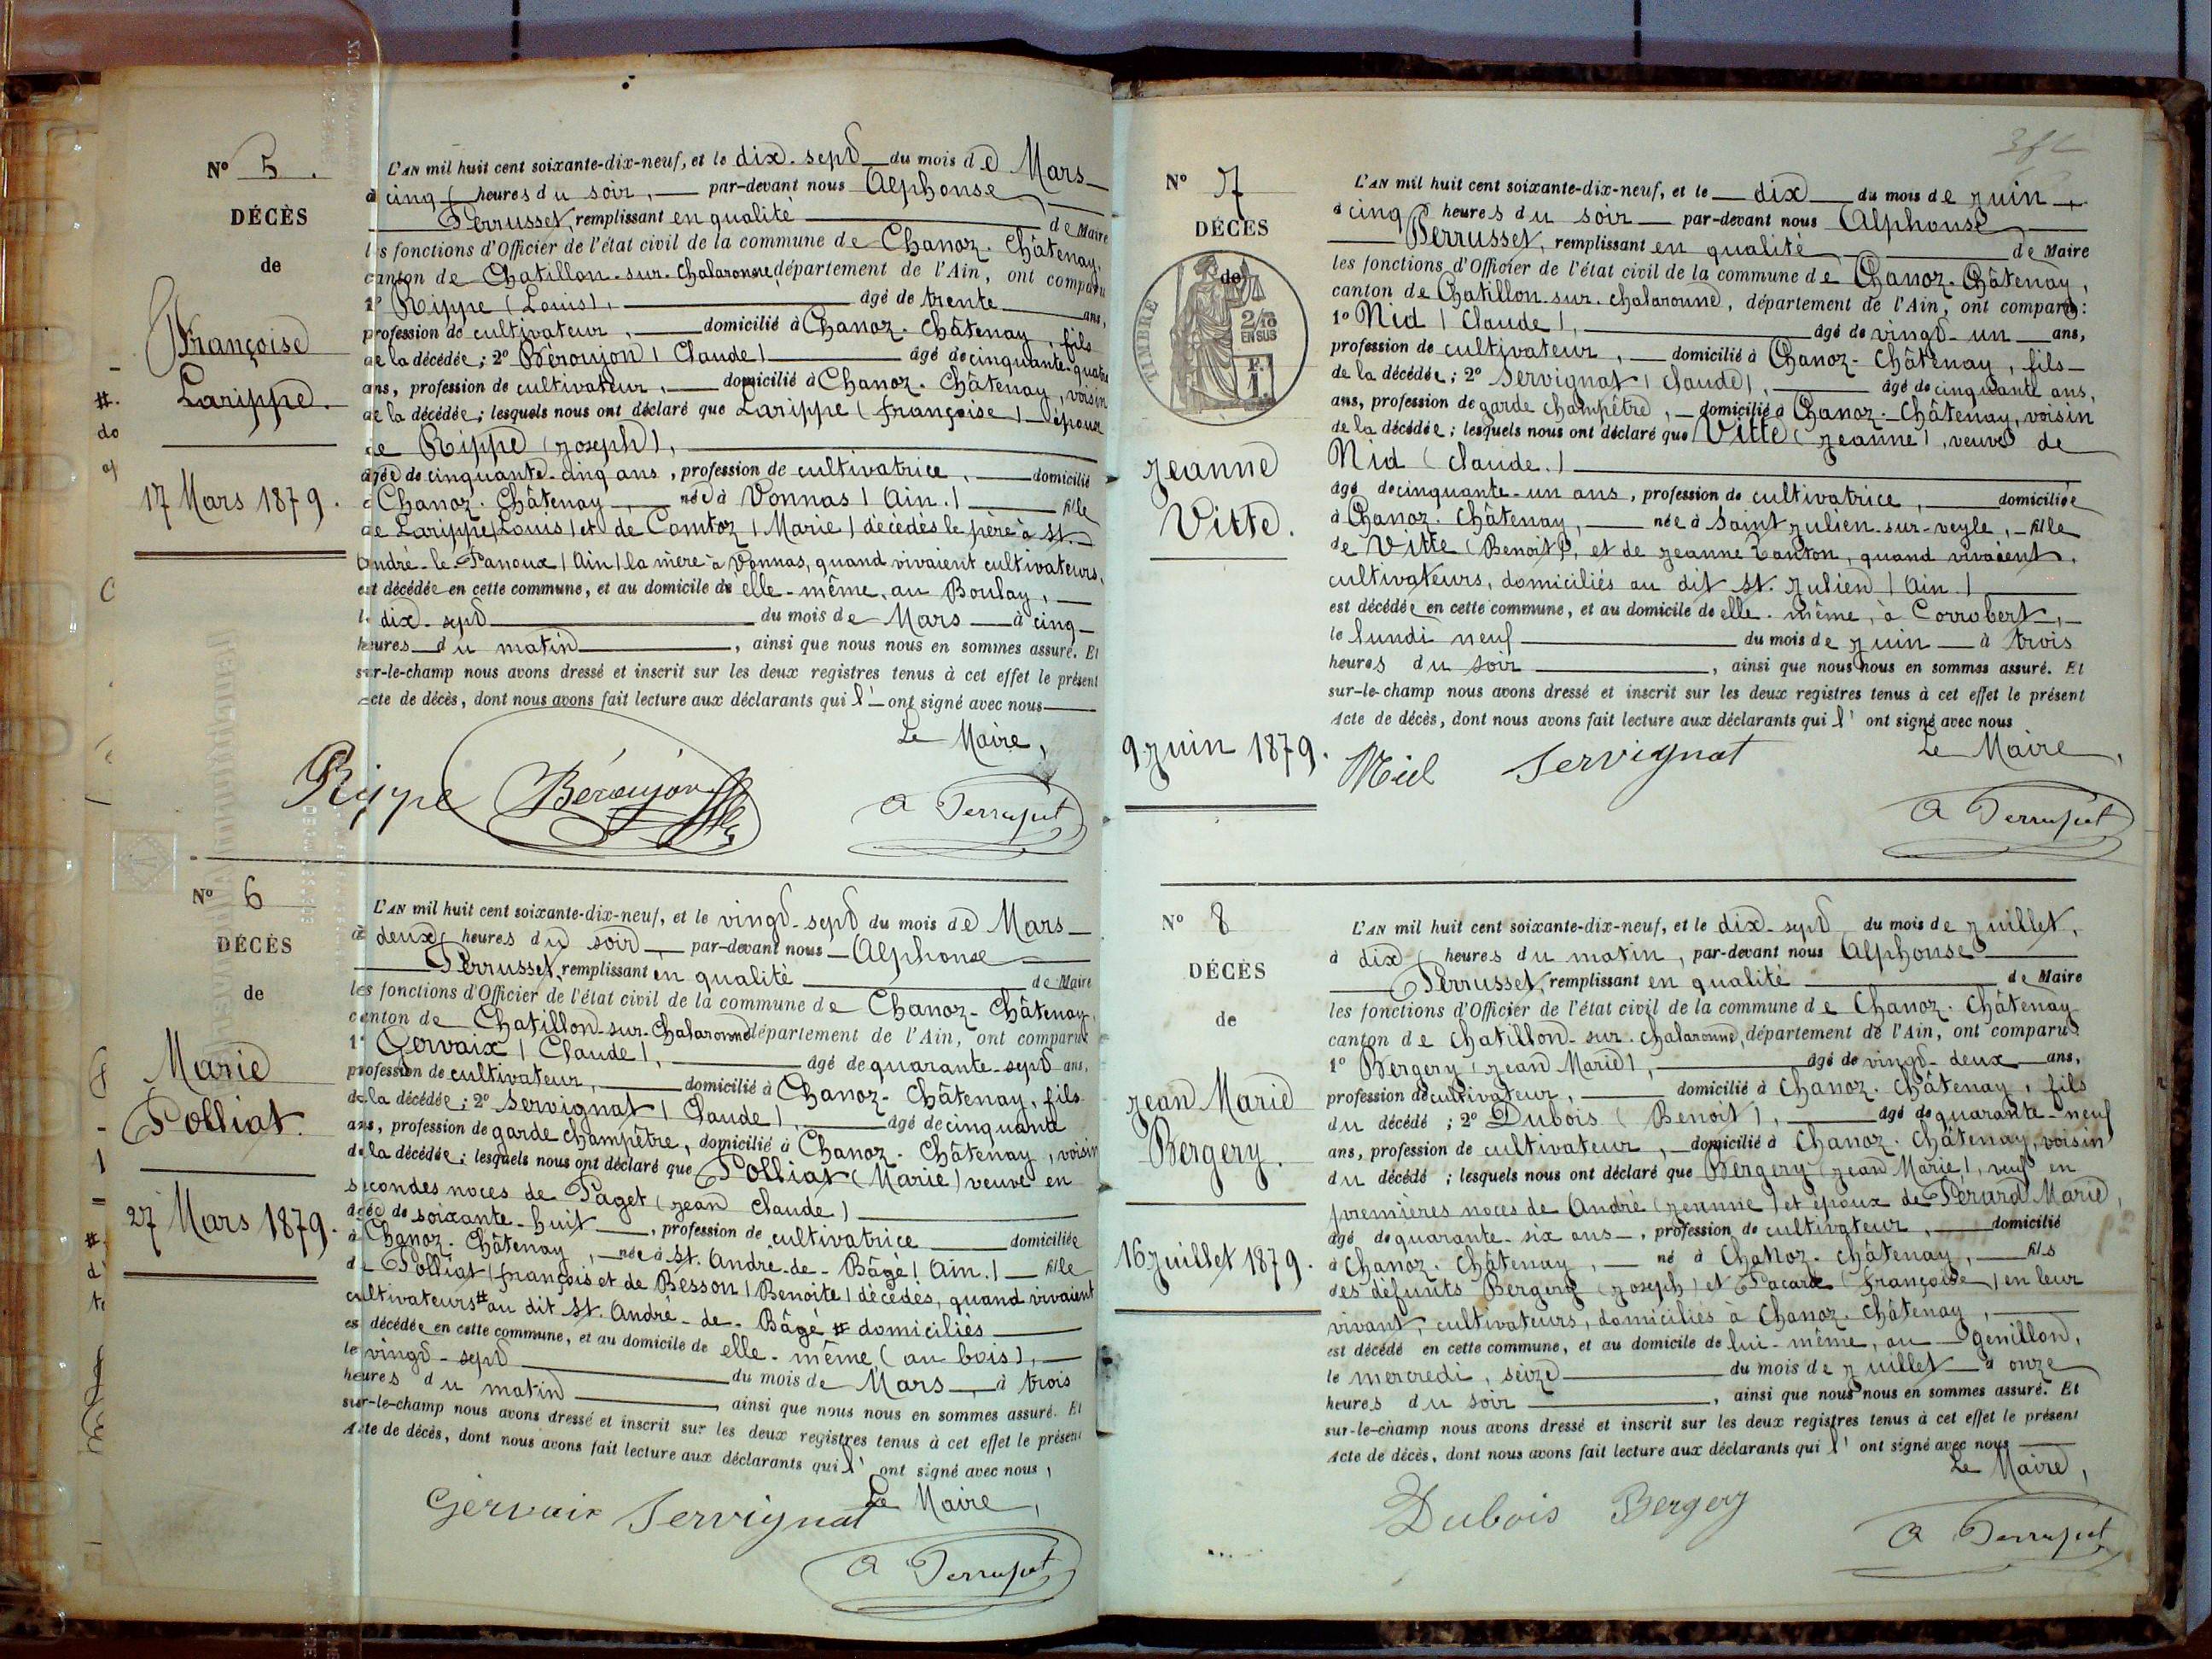 N° 5.
DÉCÈS
de
Françoise
Larippe.
17 Mars 1879.
L'AN mil huit cent soixante-dix-neuf, et le dix-sept du mois de Mars
à cinq heures du soir, par-devant nous Alphonse
Perrusset, remplissant en qualité de Maire
les fonctions d'Officier de l'état civil de la commune de Chanoz-Châtenay,
canton de Chatillon-sur-Chalaronne, département de l'Ain, ont comparu
1° Rippe (Louis), âgé de trente ans,
profession de cultivateur, domicilié à Chanoz-Châtenay, fils
de la décédée; 2° Béroujon (Claude) âgé de cinquante-quatre
ans, profession de cultivateur, domicilié à Chanoz-Châtenay, voisin
de la décédée; lesquels nous ont déclaré que Larippe (françoise) épouse
de Rippe (Joseph),
âgée de cinquante-cinq ans, profession de cultivatrice, domicilié
à Chanoz-Châtenay, née à Vonnas (Ain.) fille
de Larippe (Louis) et de Comtoz (Marie) décédés le père à St.
André-le-Panoux (Ain) la mère à Vonnas, quand vivaient cultivateurs,
est décédée en cette commune, et au domicile de elle-même, au Boulay,
le dix-sept du mois de Mars à cinq
heures du matin, ainsi que nous nous en sommes assuré. Et
sur-le-champ nous avons dressé et inscrit sur les deux registres tenus à cet effet le présent
Acte de décès, dont nous avons fait lecture aux déclarants qui l'ont signé avec nous
Le Maire,
Rippe Béroujon A Perrusset
N° 6
DÉCÈS
de
Marie
Polliat.
27 Mars 1879.
L'AN mil huit cent soixante-dix-neuf, et le vingt-sept du mois de Mars
à deux heures du soir, par-devant nous Alphonse
Perrusset, remplissant en qualité de Maire
les fonctions d'Officier de l'état civil de la commune de Chanoz-Châtenay,
canton de Chatillon-sur-Chalaronne département de l'Ain, ont comparu
1° Gervaix (Claude), âgé de quarante-sept ans,
profession de cultivateur, domicilié à Chanoz-Châtenay, fils
de la décédée; 2° Servignat (Claude), âgé de cinquante
ans, profession de garde champêtre, domicilié à Chanoz-Châtenay, voisin
de la décédée; lesquels nous ont déclaré que Polliat (Marie) veuve en
secondes noces de Paget (Jean Claude)
âgée de soixante-huit, profession de cultivatrice domiciliée
à Chanoz-Châtenay, née à St. André-de-Bâgé (Ain.) fille
de Polliat (françois et de Besson (Benoite) décédés, quand vivaient
cultivateurs # au dit St. André-de-Bâgé # domiciliés
est décédée en cette commune, et au domicile de elle-même (au bois),
le vingt-sept du mois de Mars, à trois
heures du matin, ainsi que nous nous en sommes assuré. Et
sur-le-champ nous avons dressé et inscrit sur les deux registres tenus à cet effet le présent
Acte de décès, dont nous avons fait lecture aux déclarants qui l'ont signé avec nous,
Le Maire,
Gervaix Servignat
A Perrusset
N° 7
DÉCÈS
de
TIMBRE
2/10
EN SUS
Jeanne
Vitte.
9 Juin 1879.
L'AN mil huit cent soixante-dix-neuf, et le dix du mois de Juin
à cinq heures du soir par-devant nous Alphonse
Perrusset, remplissant en qualité de Maire
les fonctions d'Officier de l'état civil de la commune de Chanoz-Châtenay,
canton de Chatillon-sur-Chalaronne, département de l'Ain, ont comparu:
1° Nid (Claude), âgé de vingt-un ans,
profession de cultivateur, domicilié à Chanoz-Châtenay, fils
de la décédée; 2° Servignat (Claude), âgé de cinquante ans,
ans, profession de garde champêtre, domicilié à Chanoz-Châtenay, voisin
de la décédée; lesquels nous ont déclaré que Vitte (Jeanne), veuve de
Nid (Claude.)
âgé de cinquante-un ans, profession de cultivatrice, domiciliée
à Chanoz-Châtenay, née à Saint Julien-sur-veyle, fille
de Vitte (Benoit), et de Jeanne Tanton, quand vivaient,
cultivateurs, domiciliés au dit St. Julien (Ain.)
est décédée en cette commune, et au domicile de elle-même, à Corrobert,
le lundi neuf du mois de Juin à trois
heures du soir, ainsi que nous nous en sommes assuré. Et
sur-le-champ nous avons dressé et inscrit sur les deux registres tenus à cet effet le présent
Acte de décès, dont nous avons fait lecture aux déclarants qui l'ont signé avec nous
Le Maire,
Servignat
A Perrusset
N° 8
DÉCÈS
de
Jean Marie
Bergery.
16 Juillet 1879.
L'AN mil huit cent soixante-dix-neuf, et le dix-sept du mois de Juillet,
à dix heures du matin, par-devant nous Alphonse
Perrusset, remplissant en qualité de Maire
les fonctions d'Officier de l'état civil de la commune de Chanoz-Châtenay
canton de Chatillon-sur-Chalaronne, département de l'Ain, ont comparu
1° Bergery (Jean Marie), âgé de vingt-deux ans,
profession de cultivateur, domicilié à Chanoz-Châtenay, fils
du décédé; 2° Dubois (Benoit), âgé de quarante-neuf
ans, profession de cultivateur, domicilié à Chanoz-Châtenay, voisin
du décédé; lesquels nous ont déclaré que Bergery (Jean Marie), veuf en
premières noces de André (Jeanne) et époux de Pérard Marie,
âgé de quarante-six ans, profession de cultivateur, domicilié
à Chanoz-Châtenay, né à Chanoz-Châtenay, fils
des défunts Bergery (Joseph) et Pacard (Françoise) en leur
vivant, cultivateurs, domiciliés à Chanoz-Châtenay,
est décédé en cette commune, et au domicile de lui-même, au Genillon,
le mercredi, seize du mois de Juillet à onze
heures du soir, ainsi que nous nous en sommes assuré. Et
sur-le-champ nous avons dressé et inscrit sur les deux registres tenus à cet effet le présent
Acte de décès, dont nous avons fait lecture aux déclarants qui l'ont signé avec nous
Le Maire,
Dubois Bergery
A Perrusset